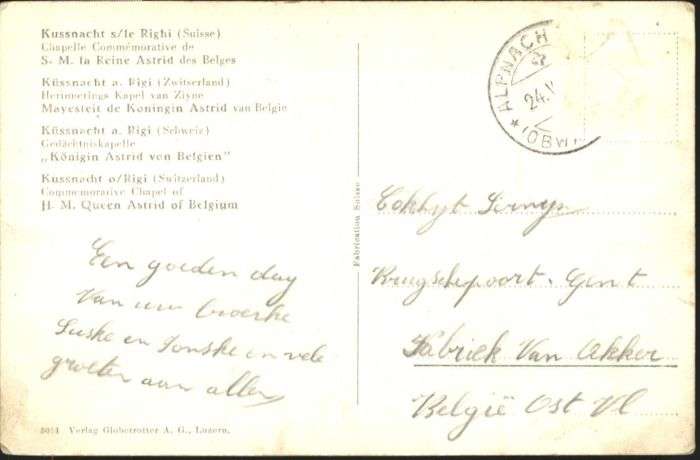 Kussnacht s/le Righi (Suisse)
Chapelle Commémorative de
S. M. la Reine Astrid des Belges
Küssnacht a. Rigi (Zwitserland)
Herinnerings Kapel van Zijne
Mayesteit de Koningin Astrid van Belgie
Küssnacht a. Rigi (Schweiz)
Gedächtniskapelle
„Königin Astrid von Belgien"
Kussnacht o/Rigi (Switzerland)
Commemorative Chapel of
H. M. Queen Astrid of Belgium
Een goeden dag
Van uw broerke
Suske en Jonske en vele
groeten aan allen
5051 Verlag Globetrotter A. G., Luzern.
Fabrication Suisse
ALPNACH
24.
(OBW
Gent
Fabriek Van Akker
België Ost Vl